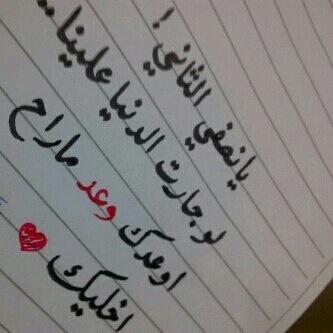 يا نصفي الثاني !
لو جارت الدنيا علينا..
اوعدك وعد ماراح
اخليك